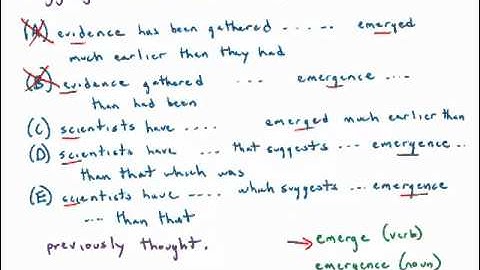 (A) evidence has been gathered ..... emerged
much earlier then they had
(B) evidence gathered ... .... emergence ....
than had been
(C) scientists have .... emerged much earlier than
(D) scientists have ... that suggests ... emergence ..
than that which was
(E) scientists have .... which suggests ... emergence
.... than that
previously thought.
→ emerge (verb)
emergence (noun)